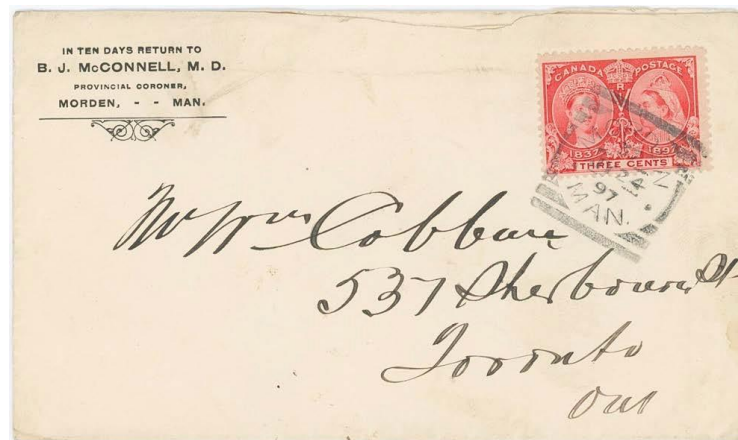 IN TEN DAYS RETURN TO
B. J. McCONNELL, M. D.
PROVINCIAL CORONER,
MORDEN, - - MAN.
CANADA POSTAGE
V R
1837 1897
THREE CENTS
24
97
MAN.
Mr Wm Cobban
537 Sherbourne St
Toronto
Ont